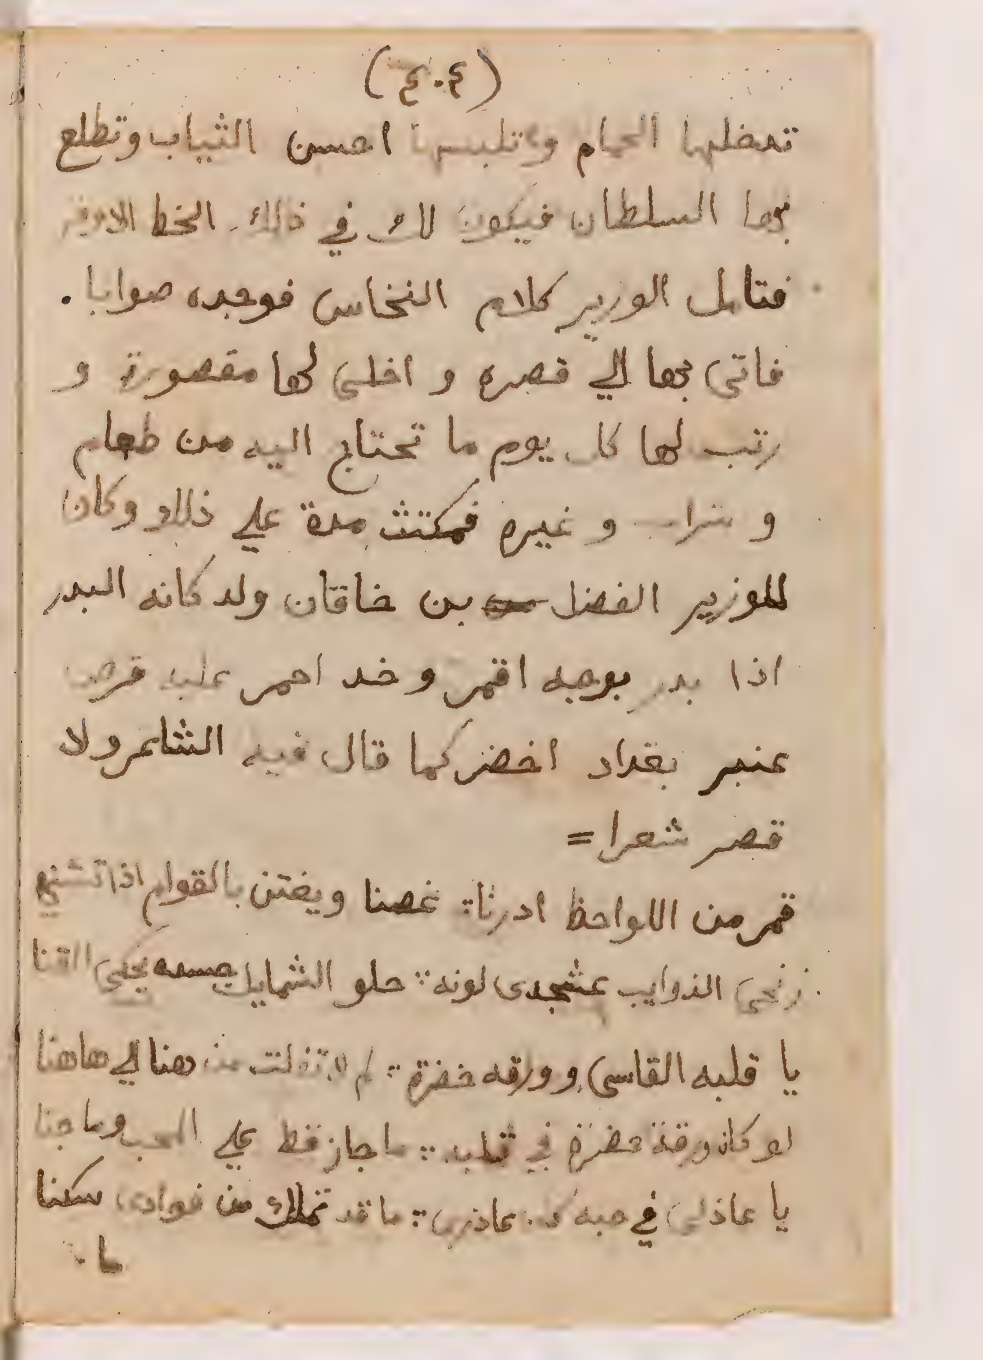 (٤٠٤)
تدخلها الحمام وتلبسها احسن الثياب وتطلع
بها السلطان فيكون لك في ذالك الحظ الاوفر
فتامل الوزير كلام النخاس فوجده صوابا .
فاتى بها الي قصره و اخلى لها مقصورة و
رتب لها كل يوم ما تحتاج اليه من طعام
و شراب و غيره فمكثت مدة علي ذلك وكان
للوزير الفضل بن خاقان ولد كانه البدر
اذا بدر بوجه اقمر و خد احمر عليه قرص
عنبر بغداد اخضر كما قال فيه الشاعر ولا
قصر شعرا =
قمر من اللواحظ ادرنا؛ غصنا ويفتن بالقوام اذا تثني
زنجي الذوايب عشجدى لونه ؛ حلو الشمايل جسمه يحكي القنا
يا قلبه القاسي وورقه خضرة ؛ لم لا تفلت من هنا الي هاهنا
لو كان ورقة خضرة في قلبه ؛ ما جاز قط علي المحب وما جنا
يا عاذلي في حبه كن عاذرى ؛ ما قد تملك من فوادى سكنا
ما